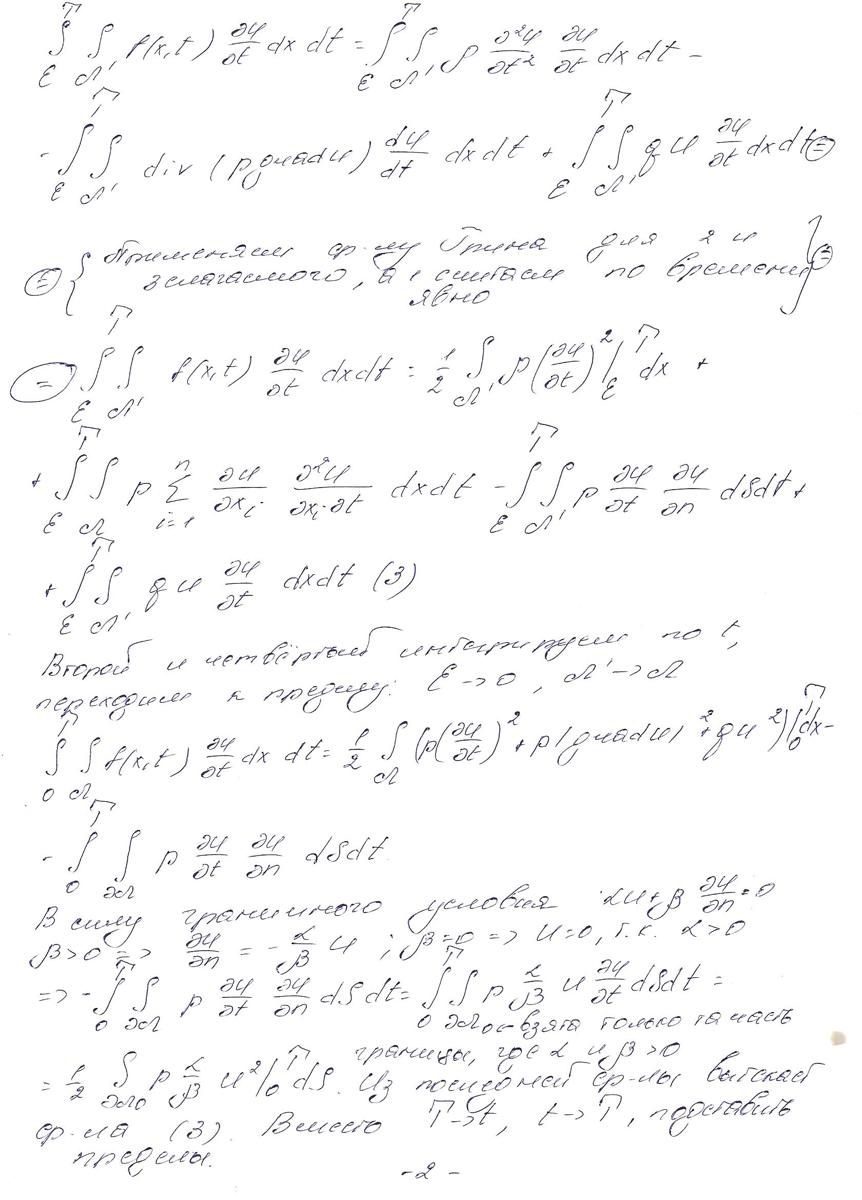 ∫_ε^T ∫_Ω' f(x,t) ∂u/∂t dx dt = ∫_ε^T ∫_Ω' ρ ∂²u/∂t² ∂u/∂t dx dt −
- ∫_ε^T ∫_Ω' div (p grad u) du/dt dx dt + ∫_ε^T ∫_Ω' q u ∂u/∂t dx dt =
= { Применяем ф-лу Грина для 2 и
3 слагаемого, а 1 считаем по времени } =
явно
= ∫_ε^T ∫_Ω' f(x,t) ∂u/∂t dx dt = 1/2 ∫_Ω' ρ(∂u/∂t)² |_ε^T dx +
+ ∫_ε^T ∫_Ω p Σ_{i=1}^n ∂u/∂x_i ∂²u/∂x_i ∂t dx dt - ∫_ε^T ∫_Ω' p ∂u/∂t ∂u/∂n dS dt +
+ ∫_ε^T ∫_Ω' q u ∂u/∂t dx dt (3)
Второй и четвёртый интегрируем по t,
переходим к пределу: ε → 0, Ω' → Ω
∫_0^T ∫_Ω f(x,t) ∂u/∂t dx dt = 1/2 ∫_Ω (ρ(∂u/∂t)² + p|grad u|² + qu²)|_0^T dx −
- ∫_0^T ∫_∂Ω p ∂u/∂t ∂u/∂n dS dt
В силу граничного условия αu + β ∂u/∂n = 0
β>0 => ∂u/∂n = - α/β u ; β=0 => u=0, т.к. α>0
=> - ∫_0^T ∫_∂Ω p ∂u/∂t ∂u/∂n dS dt = ∫_0^T ∫_∂Ω₀ p α/β u ∂u/∂t dS dt =
- взята только та часть
границы, где α и β>0
= 1/2 ∫_∂Ω₀ p α/β u² |_0^T dS. Из последней ф-лы вытекает
ф-ла (3). Вместо T→t, t→T, подставить
пределы.
- 2 -